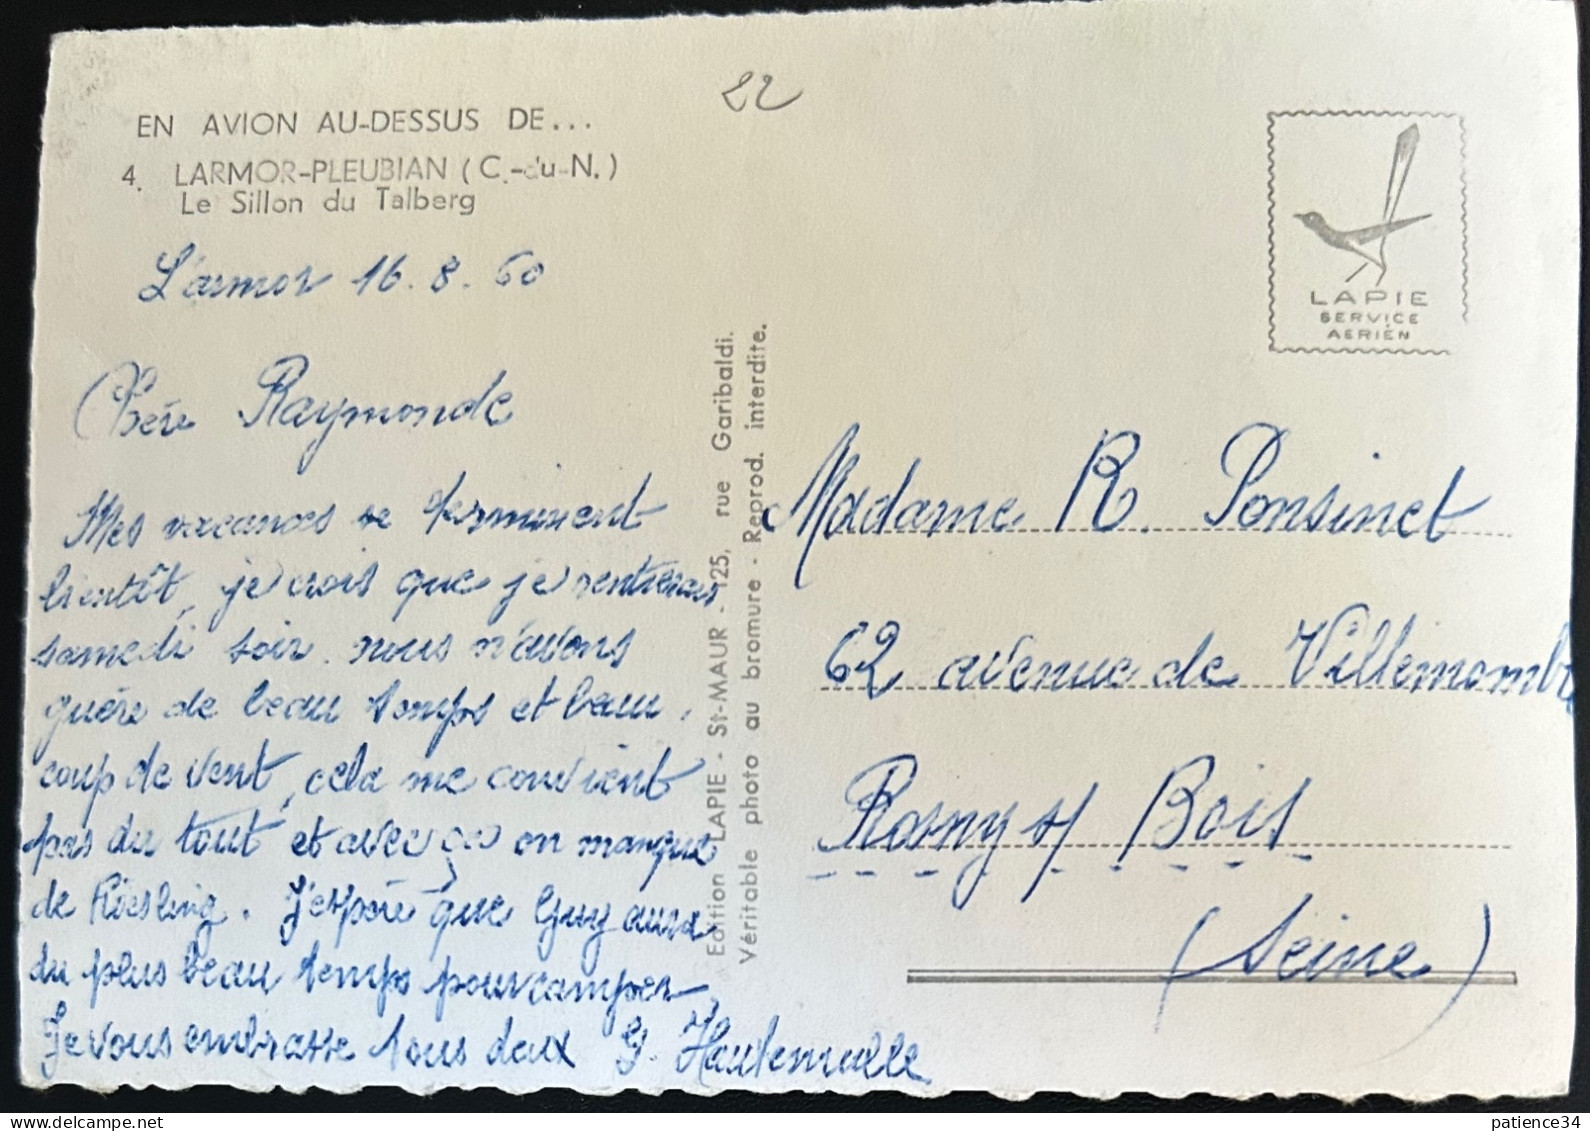 22
EN AVION AU-DESSUS DE...
4. LARMOR-PLEUBIAN (C.-du-N.)
Le Sillon du Talberg
LAPIE
SERVICE
AERIEN
L'armor 16.8.60
Chère Raymonde
Mes vacances se terminent
bientôt, je crois que je rentrerai
samedi soir. nous n'avons
guère de beau temps et beau.
coup de vent, cela me convient
pas du tout et avec ça on manque
de Riesling. J'espère que Guy aura
du plus beau temps pour camper
Je vous embrasse tous deux G. Hautemulle
Edition LAPIE - St-MAUR - 125, rue Garibaldi.
Véritable photo au bromure - Reprod. interdite.
Madame R. Ponsinet
62 avenue de Villemomble
Rosny s/ Bois
(Seine)
patience34